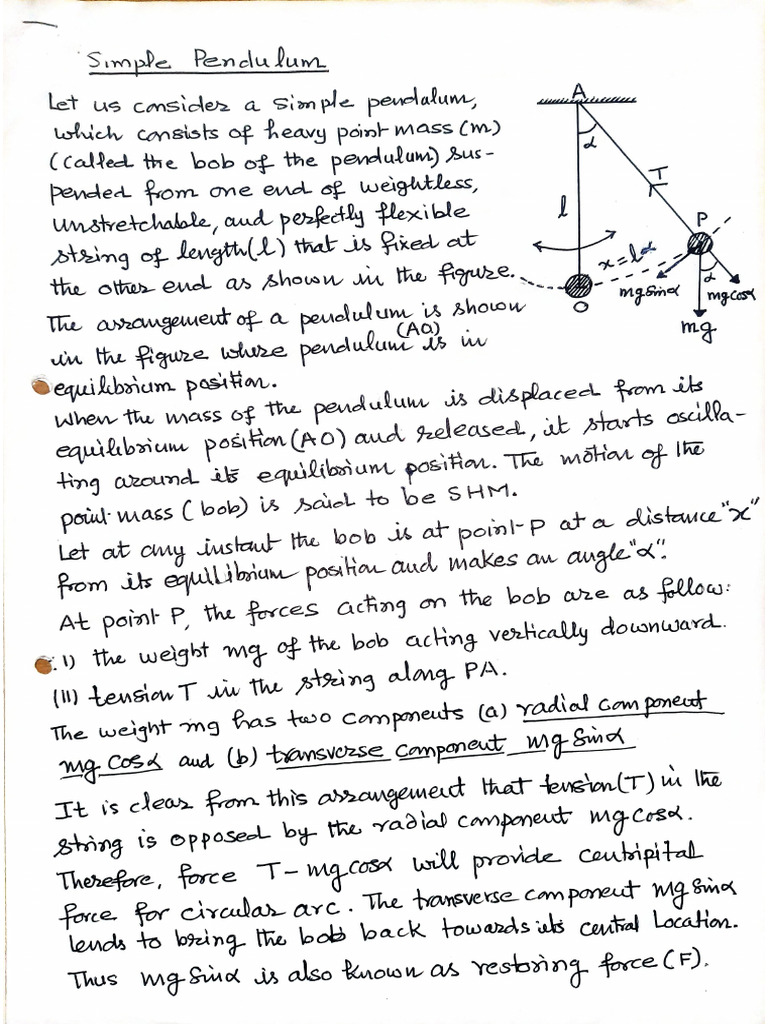 Simple Pendulum
Let us consider a simple pendalum,
which consists of heavy point mass (m)
(called the bob of the pendulum) sus-
pended from one end of weightless,
unstretchable, and perfectly flexible
string of length(l) that is fixed at
the other end as shown in the figure.
The arrangement of a pendulum is shown
in the figure where pendulum (AO) is in
equilibrium position.
A
α
T
l
P
x=lα
α
mg Sinα
mg cosα
O
mg
When the mass of the pendulum is displaced from its
equilibrium position (AO) and released, it starts oscilla-
ting around its equilibrium position. The motion of the
point mass (bob) is said to be SHM.
Let at any instant the bob is at point P at a distance "x"
from its equilibrium position and makes an angle "α".
At point P, the forces acting on the bob are as follow:
(I) the weight mg of the bob acting vertically downward.
(II) tension T in the string along PA.
The weight mg has two components (a) radial component
mg Cosα and (b) transverse component mg Sinα
It is clear from this arrangement that tension(T) in the
string is opposed by the radial component mg cosα.
Therefore, force T-mg cosα will provide centripital
force for circular arc. The transverse component mg Sinα
tends to bring the bob back towards its central Location.
Thus mg Sinα is also known as restoring force (F).